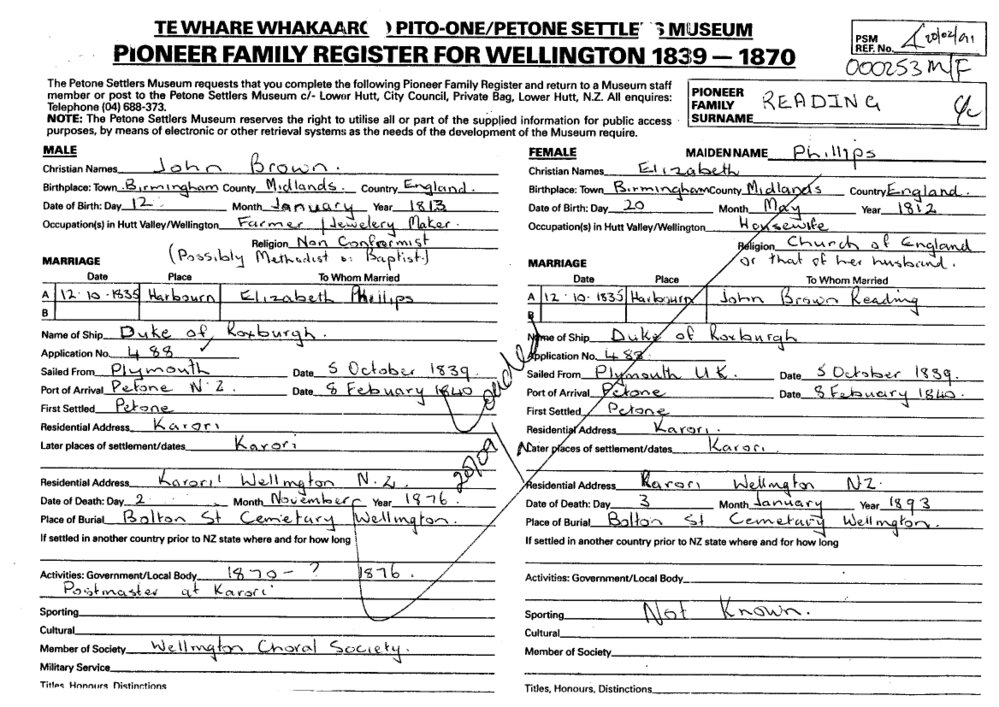 TE WHARE WHAKAAR( ) PITO-ONE/PETONE SETTLE S MUSEUM
PIONEER FAMILY REGISTER FOR WELLINGTON 1839 — 1870
PSM REF. No.
000253 M/F
The Petone Settlers Museum requests that you complete the following Pioneer Family Register and return to a Museum staff
member or post to the Petone Settlers Museum c/- Lower Hutt, City Council, Private Bag, Lower Hutt, N.Z. All enquires:
Telephone (04) 688-373.
NOTE: The Petone Settlers Museum reserves the right to utilise all or part of the supplied information for public access
purposes, by means of electronic or other retrieval systems as the needs of the development of the Museum require.
PIONEER FAMILY SURNAME READING
MALE
Christian Names John Brown.
Birthplace: Town Birmingham County Midlands. Country England.
Date of Birth: Day 12 Month January Year 1813
Occupation(s) in Hutt Valley/Wellington Farmer / Jewelery Maker.
Religion Non Conformist
(Possibly Methodist or Baptist.)
MARRIAGE
Date Place To Whom Married
A 12·10·1835 Harbourn Elizabeth Phillips
B
Name of Ship Duke of Roxburgh.
Application No. 488
Sailed From Plymouth Date 5 October 1839.
Port of Arrival Petone N.Z. Date 8 Febuary 1840
First Settled Petone
Residential Address Karori
Later places of settlement/dates Karori
Residential Address Karori Wellington N.Z.
Date of Death: Day 2 Month November Year 1876.
Place of Burial Bolton St Cemetary Wellington.
If settled in another country prior to NZ state where and for how long
Activities: Government/Local Body 1870 - ? 1876.
Postmaster at Karori
Sporting
Cultural
Member of Society Wellington Choral Society.
Military Service
Titles Honours Distinctions
FEMALE MAIDEN NAME Phillips
Christian Names Elizabeth
Birthplace: Town Birmingham County Midlands Country England.
Date of Birth: Day 20 Month May Year 1812
Occupation(s) in Hutt Valley/Wellington Housewife
Religion Church of England
or that of her husband.
MARRIAGE
Date Place To Whom Married
A 12·10·1835 Harbourn John Brown Reading
B
Name of Ship Duke of Roxburgh
Application No. 488.
Sailed From Plymouth U.K. Date 5 October 1839.
Port of Arrival Petone Date 8 Febuary 1840.
First Settled Petone
Residential Address Karori.
Later places of settlement/dates Karori
Residential Address Karori Wellington NZ.
Date of Death: Day 3 Month January Year 1893
Place of Burial Bolton St Cemetary Wellington.
If settled in another country prior to NZ state where and for how long
Activities: Government/Local Body
Sporting Not Known.
Cultural
Member of Society
Titles, Honours, Distinctions